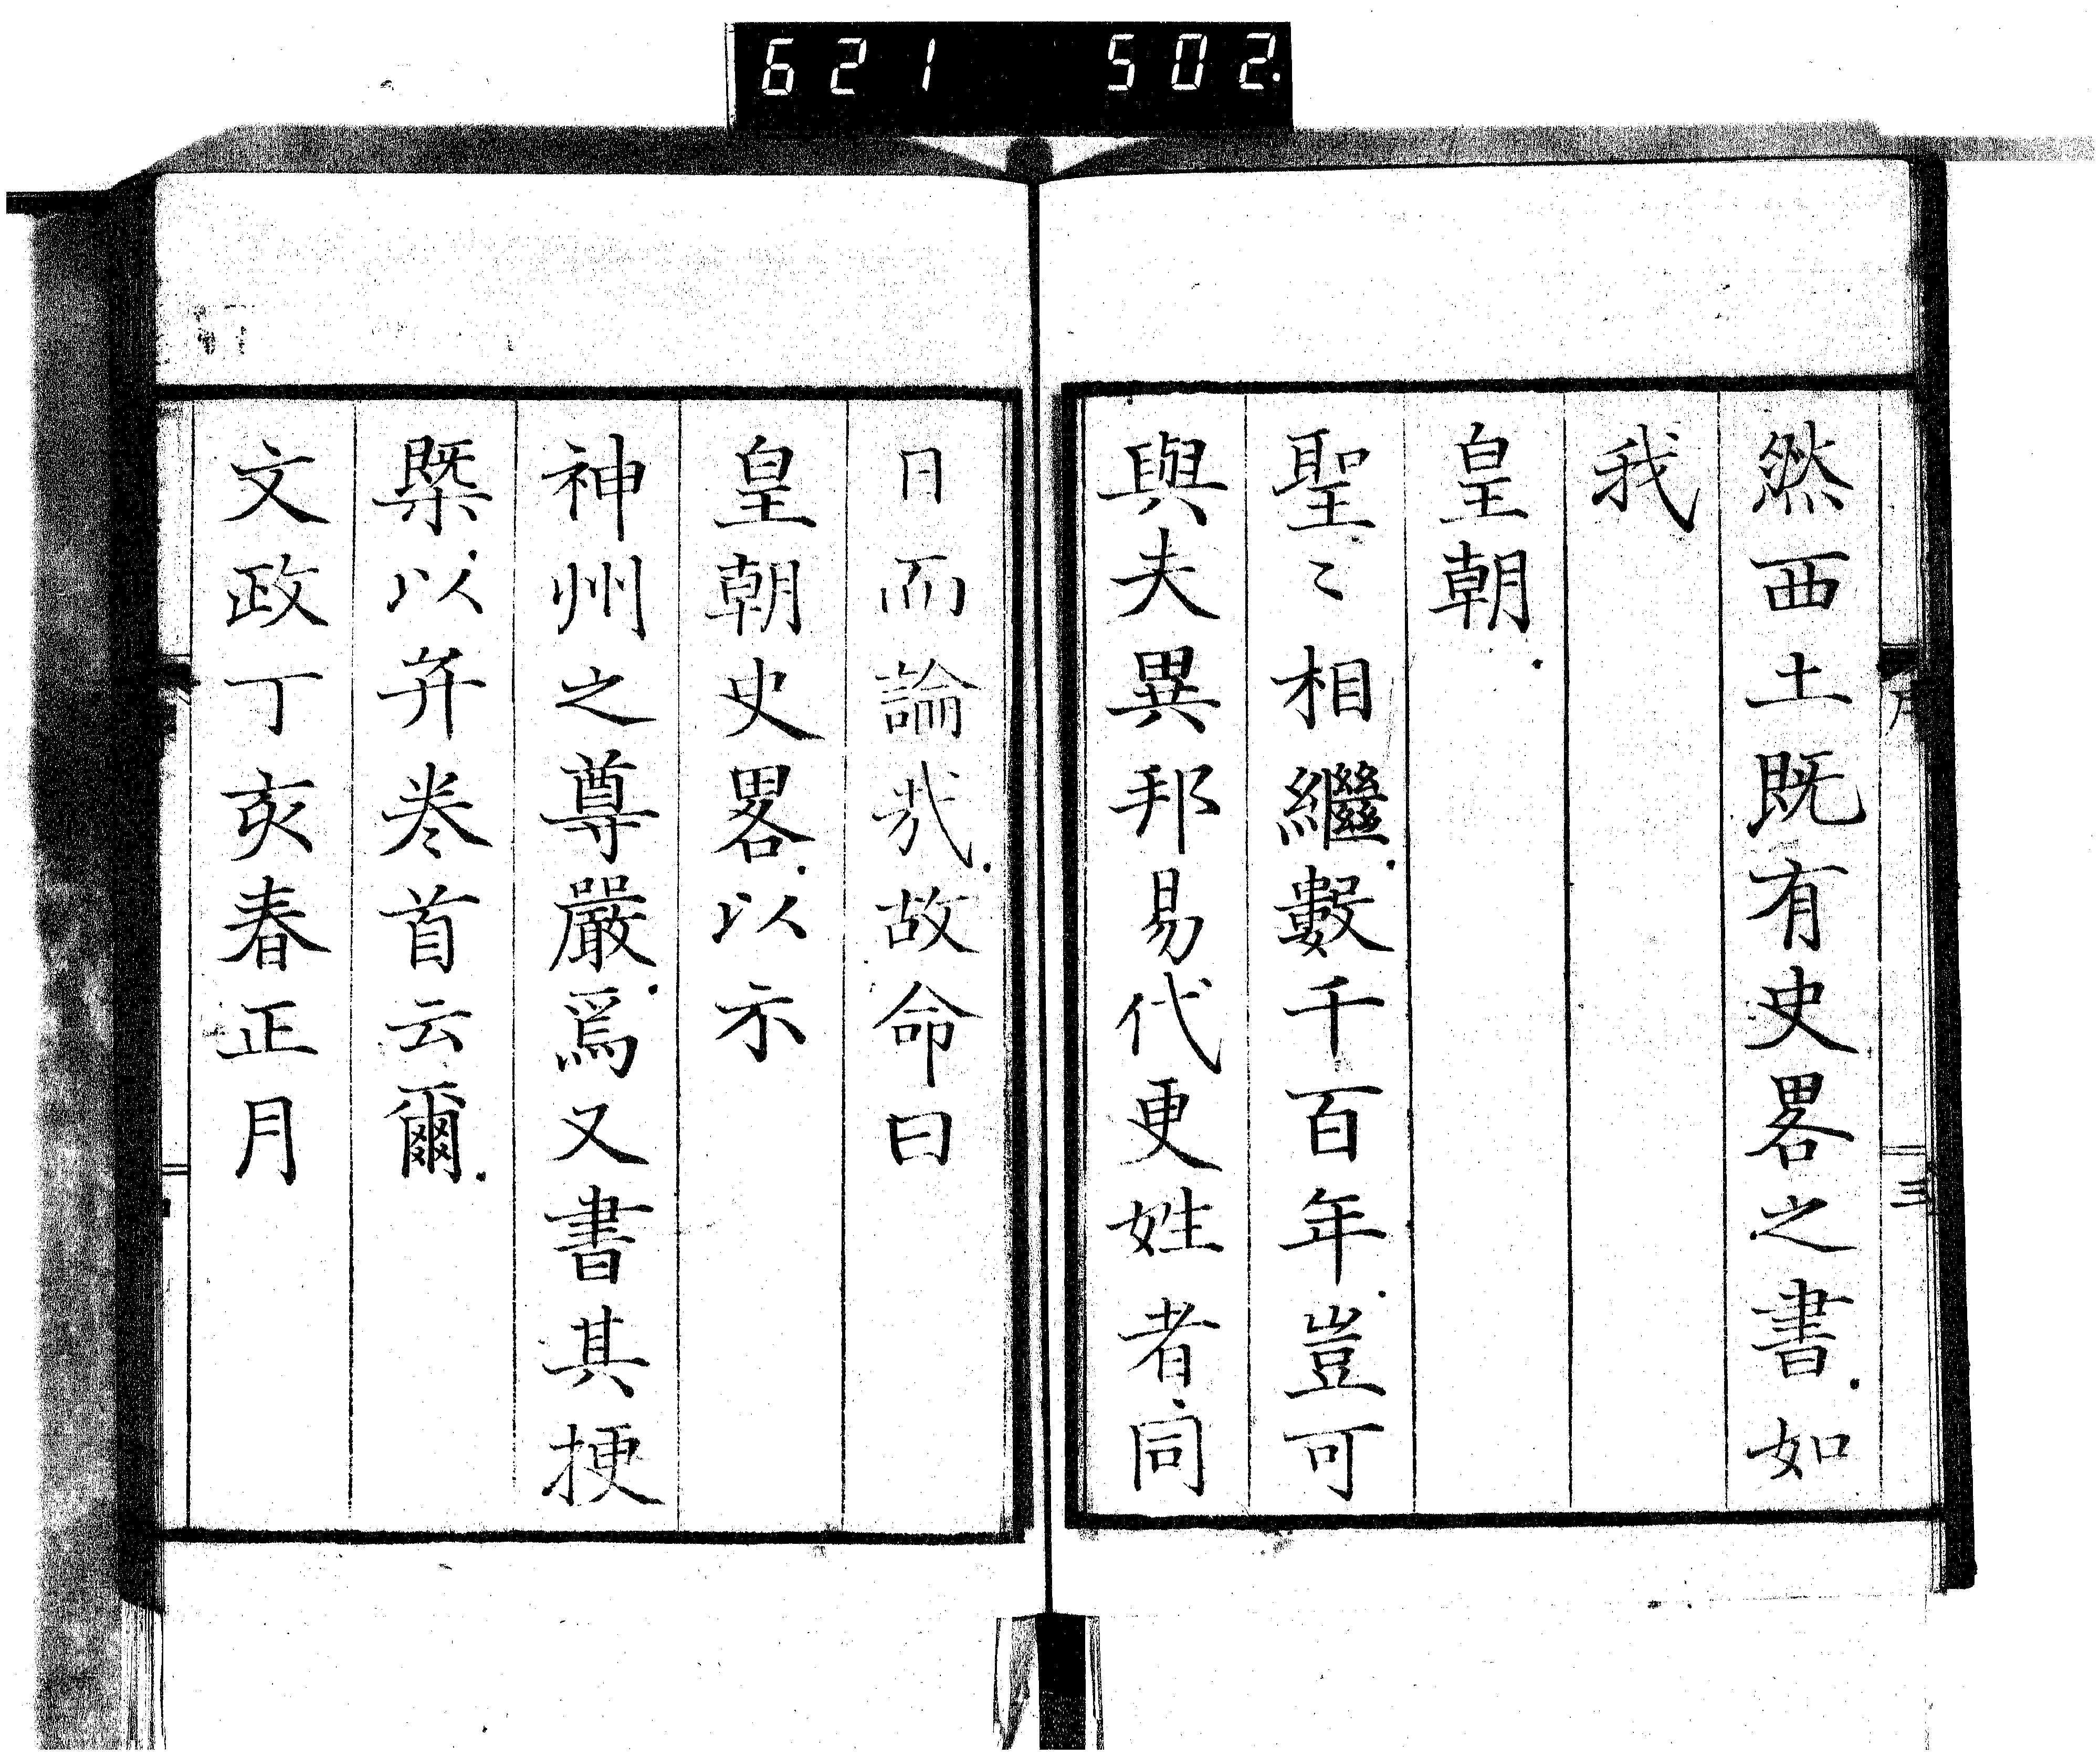 621 502.
然西土既有史畧之書．如
我
皇朝．
聖〻相繼．數千百年．豈可
與夫異邦易代更姓者．同
日而論哉．故命曰
皇朝史畧．以示
神州之尊嚴．爲又書其梗
槩．以弁卷首云爾．
文政丁亥春正月
序
三